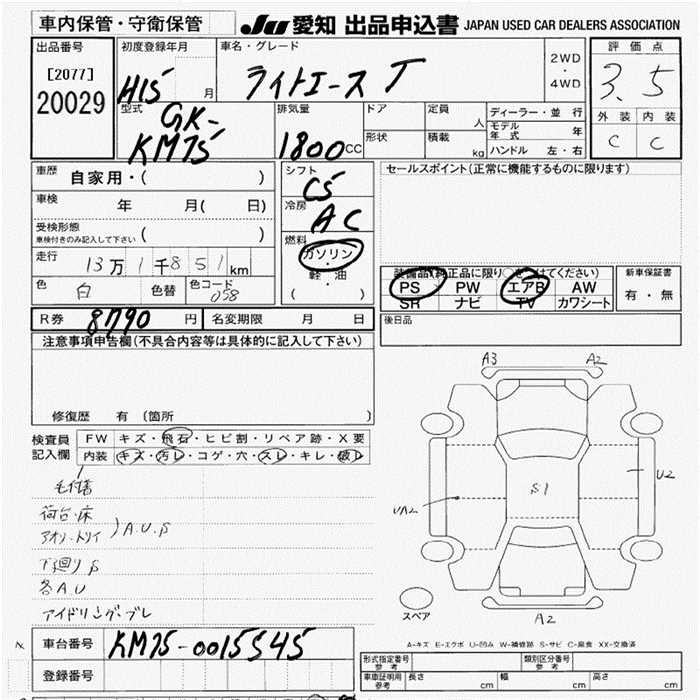 車内保管・守衛保管
JU 愛知 出品申込書 JAPAN USED CAR DEALERS ASSOCIATION
出品番号
[2077]
20029
初度登録年月
H15 月
車名・グレード
ライトエース T
2WD
・
4WD
評価点
3.5
外装 内装
C C
型式
GK-
KM75
排気量
1800cc
ドア
形状
定員 人
積載 kg
ディーラー・並行
モデル
年式 年
ハンドル 左・右
車歴
自家用・( )
車検 年 月( 日)
受検形態
車検付きのみ記入して下さい ( )
走行 13万1千851km
色 白 色替 色コード 058
シフト
C5
冷房
AC
燃料
ガソリン
・
軽・油
( )
セールスポイント(正常に機能するものに限ります)
装備品(純正品に限り○をつけてください)
PS PW エアB AW
SR ナビ TV カワシート
新車保証書
有・無
R券 8790 円 名変期限 月 日
後日品
注意事項申告欄(不具合内容等は具体的に記入して下さい)
修復歴 有 (箇所 )
検査員
記入欄
FW キズ・飛石・ヒビ割・リペア跡・X要
内装 キズ・汚レ・コゲ・穴・スレ・キレ・破レ
荷台・床
A.U.S
下廻りS
各A.U
アイドリング・ブレ
A3 A2
S1
U2
UA2
A2
スペア
A-キズ E-エクボ U-凹み W-補修跡 S-サビ C-腐食 XX-交換済
車台番号 KM75-0015545
登録番号
形式指定番号
参考
類別区分番号
参考
車庫証明用
参考
長さ cm 幅 cm 高さ cm